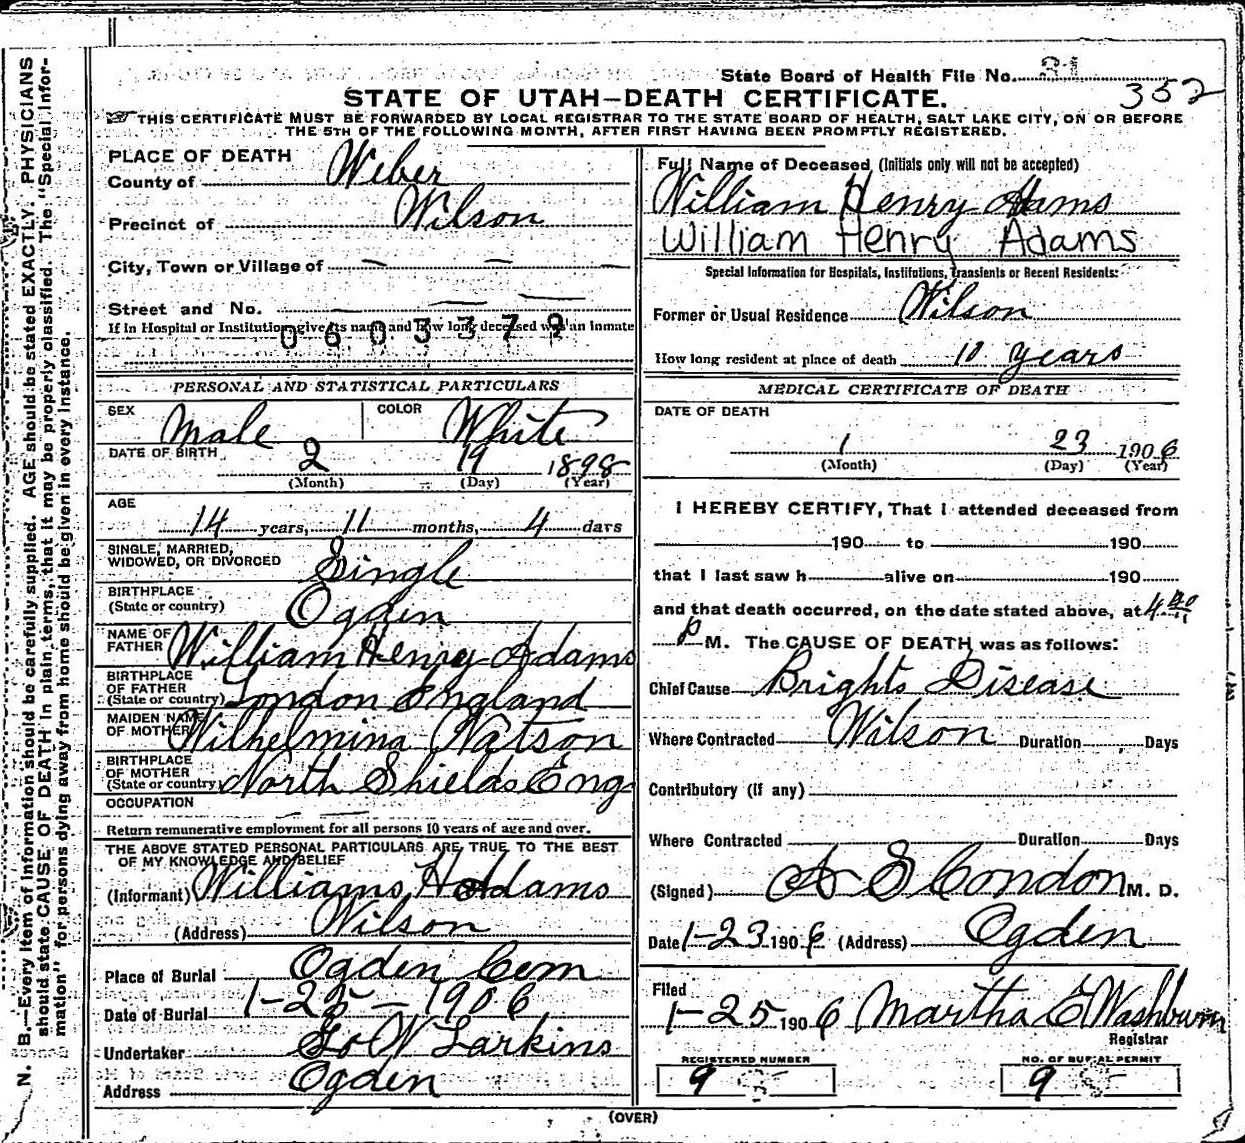 State Board of Health File No. 31
352
STATE OF UTAH—DEATH CERTIFICATE.
THIS CERTIFICATE MUST BE FORWARDED BY LOCAL REGISTRAR TO THE STATE BOARD OF HEALTH, SALT LAKE CITY, ON OR BEFORE
THE 5TH OF THE FOLLOWING MONTH, AFTER FIRST HAVING BEEN PROMPTLY REGISTERED.
N. B.—Every item of information should be carefully supplied. AGE should be stated EXACTLY. PHYSICIANS
should state CAUSE OF DEATH in plain terms, that it may be properly classified. The "Special Infor-
mation" for persons dying away from home should be given in every instance.
PLACE OF DEATH
County of Weber
Precinct of Wilson
City, Town or Village of — — —
Street and No. — —
If in Hospital or Institution, give its name and how long deceased was an inmate
0603372
PERSONAL AND STATISTICAL PARTICULARS
SEX Male COLOR White
DATE OF BIRTH 2 19 1898
(Month) (Day) (Year)
AGE
14 years, 11 months, 4 days
SINGLE, MARRIED,
WIDOWED, OR DIVORCED Single
BIRTHPLACE
(State or country) Ogden
NAME OF
FATHER William Henry Adams
BIRTHPLACE
OF FATHER
(State or country) London England
MAIDEN NAME
OF MOTHER Wilhelmina Watson
BIRTHPLACE
OF MOTHER
(State or country North Shields Eng
OCCUPATION
Return remunerative employment for all persons 10 years of age and over.
THE ABOVE STATED PERSONAL PARTICULARS ARE TRUE TO THE BEST
OF MY KNOWLEDGE AND BELIEF
(Informant) Williams H Adams
(Address) Wilson
Place of Burial Ogden Cem
Date of Burial 1-25-1906
Undertaker Go W Larkins
Address Ogden
Full Name of Deceased (Initials only will not be accepted)
William Henry Adams
William Henry Adams
Special Information for Hospitals, Institutions, Transients or Recent Residents:
Former or Usual Residence Wilson
How long resident at place of death 10 years
MEDICAL CERTIFICATE OF DEATH
DATE OF DEATH
1 23 1906
(Month) (Day) (Year)
I HEREBY CERTIFY, That I attended deceased from
190 to 190
that I last saw h alive on 190
and that death occurred, on the date stated above, at 4.40
P M. The CAUSE OF DEATH was as follows:
Chief Cause Brights Disease
Where Contracted Wilson Duration Days
Contributory (if any)
Where Contracted Duration Days
(Signed) A S Condon M. D.
Date 1-23 1906 (Address) Ogden
Filed
1-25 1906 Martha E Washburn
Registrar
REGISTERED NUMBER
9
NO. OF BURIAL PERMIT
9
(OVER)